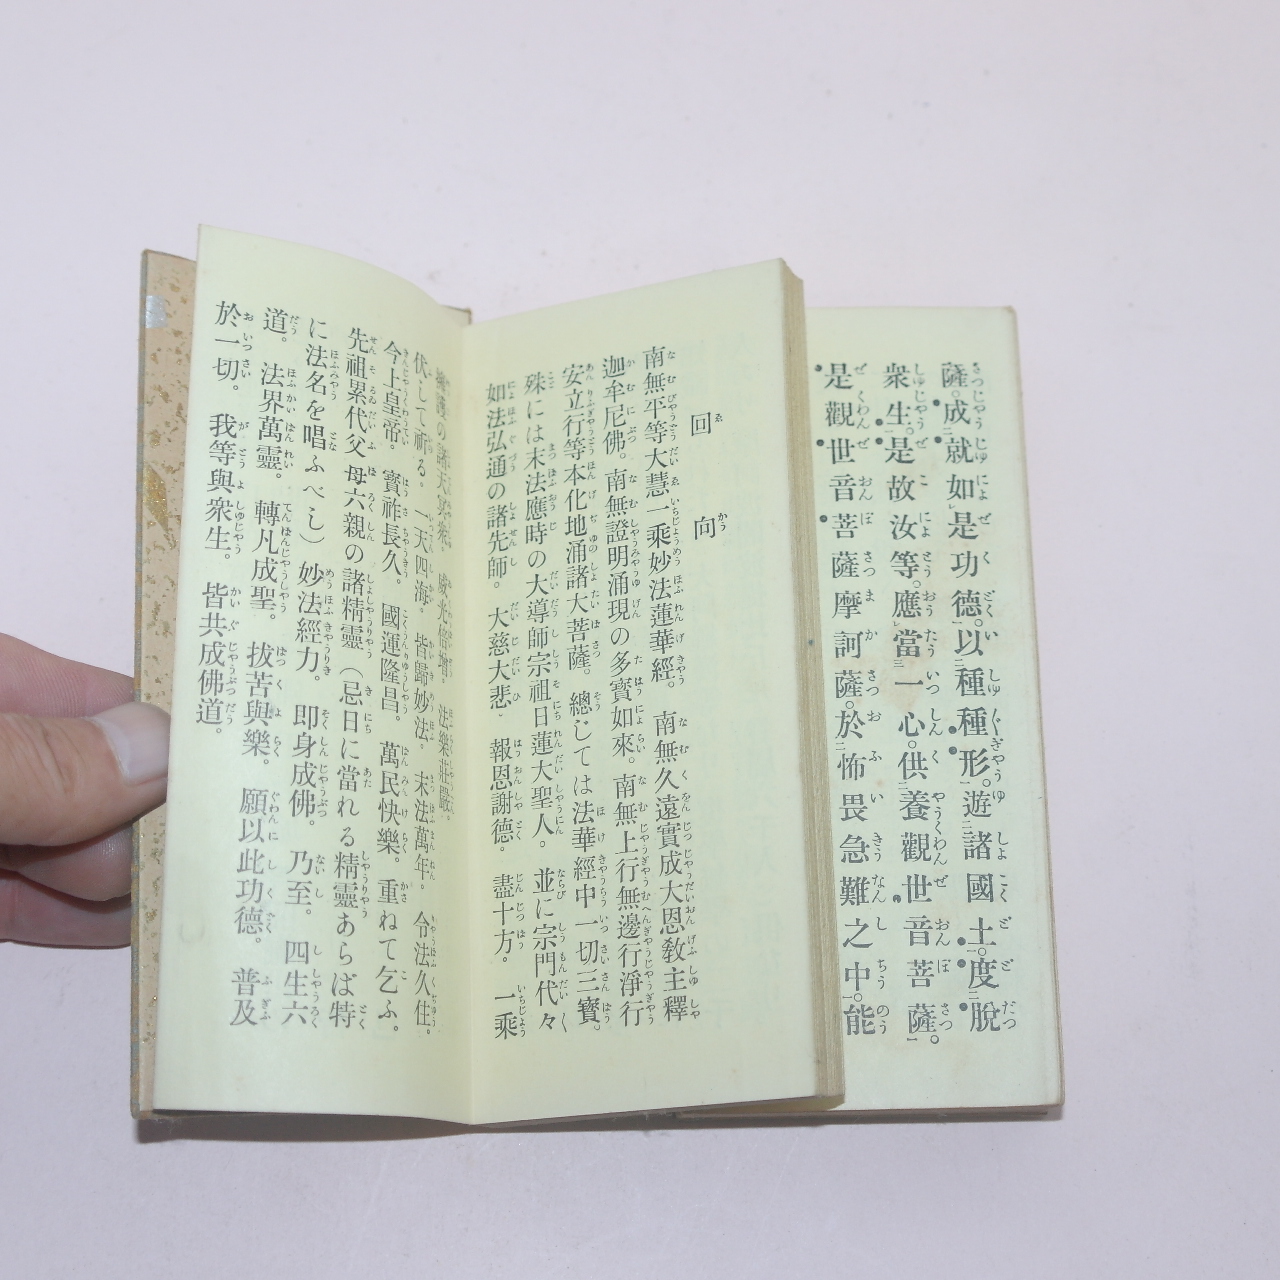 薩。成就如是功德。以種種形。遊諸國土。度脫
衆生。是故汝等。應當一心。供養觀世音菩薩。
是觀世音菩薩摩訶薩。於怖畏急難之中。能
回向
南無平等大慧一乘妙法蓮華經。南無久遠實成大恩敎主釋
迦牟尼佛。南無證明涌現の多寶如來。南無上行無邊行淨行
安立行等本化地涌諸大菩薩。總じては法華經中一切三寶。
殊には末法應時の大導師宗祖日蓮大聖人。並に宗門代々
如法弘通の諸先師。大慈大悲。報恩謝德。盡十方。一乘
の諸天善神。威光倍增。法樂莊嚴。
伏して祈る。一天四海。皆歸妙法。末法萬年。令法久住。
今上皇帝。寶祚長久。國運隆昌。萬民快樂。重ねて乞ふ。
先祖累代父母六親の諸精靈(忌日に當れる精靈あらば特
に法名を唱ふべし)妙法經力。即身成佛。乃至。四生六
道。法界萬靈。轉凡成聖。拔苦與樂。願以此功德。普及
於一切。我等與衆生。皆共成佛道。